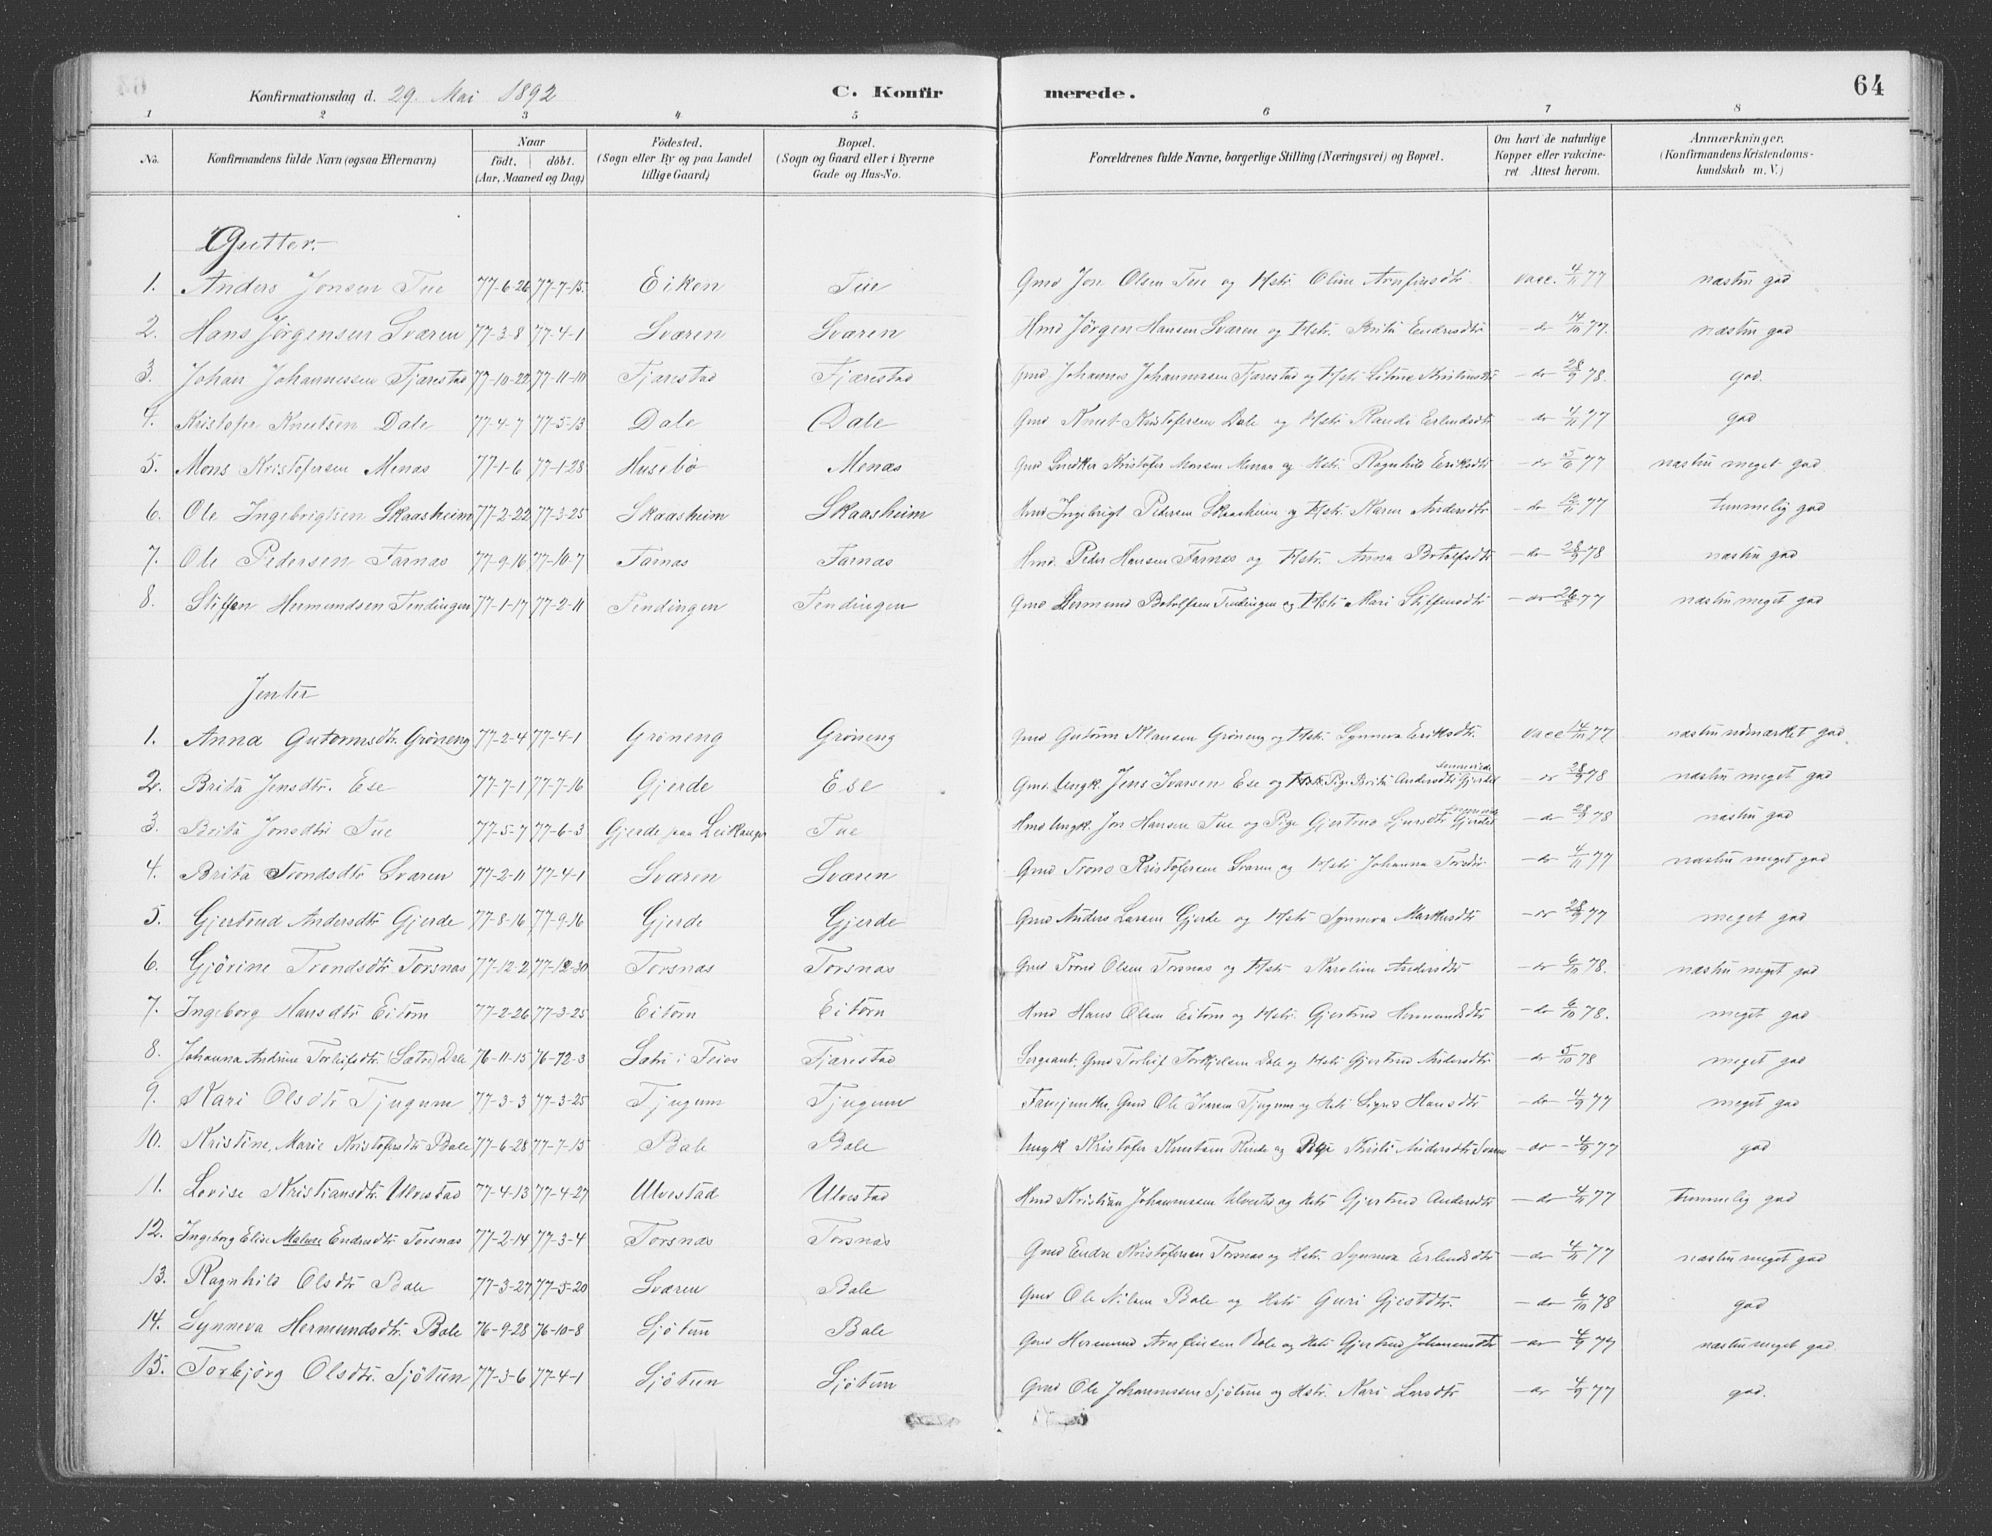 64
Konfirmationsdag d. 29. Mai 1892 C. Konfirmerede.
1 2 3 4 5 6 7 8
No. Konfirmandens fulde Navn (ogsaa Efternavn) Naar født. døbt. (Aar, Maaned og Dag) Fødested. (Sogn eller By og paa Landet tillige Gaard) Bopæl. (Sogn og Gaard eller i Byerne Gade og Hus-No. Forældrenes fulde Navne, borgerlige Stilling (Næringsvei) og Bopæl. Om havt de naturlige Kopper eller vakcineret Attest herom. Anmærkninger. (Konfirmandens Kristendomskundskab m. V.)
Gutter.
1. Anders Jonsen Tue 77-6-26 77-7-15 Eiken Tue Gmd Jon Olsen Tue og Hstr Oline Arnfinsdtr vacc. 4/11 77 næsten god
2. Hans Jørgensen Sværen 77-3-8 77-4-1 Sværen Sværen Hmd Jørgen Hansen Sværen og Hstr. Brita Endresdtr - do 14/10 77. næsten god
3. Johan Johannessen Fjærestad 77-10-22 77-11-10 Fjærestad Fjærestad Gmd Johannes Johannessen Fjærestad og Hstr - do - 28/9 78. god.
4. Kristofer Knutsen Dale 77-4-7 77-5-13 Dale Dale Gmd Knut Kristofersen Dale og Hstr Randi Erlendsdtr - do - 4/11 77 god
5. Mons Kristofersen Menæs 77-1-6 77-1-28 Husebø Menæs Gmd Snedker Kristofer Monsen Menæs og Hstr. Ragnhild Eriksdtr - do 5/6 77 næsten meget god
6. Ole Ingebrigtsen Skaasheim 77-2-22 77-3-25 Skaasheim Skaasheim Hmd Ingebrigt Pedersen Skaasheim og Hstr. Karen Andersdtr - do 12/11 77 temmelig god
7. Ole Pedersen Farnæs 77-9-16 77-10-7 Farnæs Farnæs Hmd. Peder Hansen Farnæs og Hstr. Anna Botolfsdtr - do - 28/9 78 næsten god
8. Steffen Hermundsen Tendingen 77-1-17 77-2-11 Tendingen Tendingen Gmd Hermund Botolfsen Tendingen og Hstr Mari Steffensdtr - do - 77 næsten meget god
Jenter
1. Anna Gutormsdtr. Grøneng 77-2-4 77-4-1 Grøneng Grøneng Gmd Gutorm Klausen Grøneng og Hstr. Synneva Eriksdtr. vacc 14/11 77 næsten udmærket god
2. Brita Jensdtr. Ese 77-7-1 77-7-16 Gjerde Ese Gmd. Ungk. Jens Ivarsen Ese og Pige Brita Andersdtr Gjerde - do 28/9 78 næsten meget god
3. Brita Jonsdtr Tue 77-5-7 77-6-3 Gjerde paa Leikanger Tue Hmd Ungk. Jon Hansen Tue og Pige Gjertrud Gjerde - do 28/9 78 næsten god
4. Brita Trondsdtr Sværen 77-2-11 77-4-1 Sværen Sværen Gmd Trond Kristofersen Sværen og Hstr Johanna - do - 4/11 77 næsten meget god
5. Gjertrud Andersdtr Gjerde 77-8-16 77-9-16 Gjerde Gjerde Gmd Anders Larsen Gjerde og Hstr Synneva Markusdtr - do 28/9 77 meget god
6. Gjørine Trondsdtr Torsnæs 77-12-2 77-12-30 Torsnæs Torsnæs Gmd Trond Olsen Torsnæs og Hstr Karoline Andersdtr - do 6/10 78. næsten meget god
7. Ingeborg Hansdtr Eitorn 77-2-26 77-3-25 Eitorn Eitorn Hmd Hans Olsen Eitorn og Hstr. Gjertrud Hermundsdtr - do 6/10 78. meget god
8. Johanna Andrine Torleifsdtr (Sætre) Dale 76-11-15 76-12-3 Sætre i Feios Fjærestad Sergeant. Gmd Torleif Torkjelsen Dale og Hstr Gjertrud Andersdtr - do 5/10 78 meget god
9. Kari Olsdtr Tjugum 77-3-3 77-3-25 Tjugum Tjugum Fanejunker, Gmd Ole Ivarsen Tjugum og Hstr Sigrid Hansdtr - do - 4/9 77 meget god
10. Kristine, Marie Kristofersdtr Bale 77-6-28 77-7-15 Bale Bale Ungk Kristofer Knutsen Rinde og Pige Kristi Andersdtr Sværen - do - 4/9 77 god
11. Lovise Kristiansdtr. Ulvestad 77-4-13 77-4-27 Ulvestad Ulvestad Hmd Kristian Johannessen Ulvestad og Hstr Gjertrud Andersdtr - do 4/11 77 temmelig god
12. Ingeborg Elise Malene Endresdtr Torsnæs 77-2-14 77-3-4 Torsnæs Torsnæs Gmd Endre Kristofersen Torsnæs og Hstr. Synneva Erlendsdtr - do 4/11 77 næsten meget god
13. Ragnhild Olsdtr Bale 77-3-27 77-5-20 Sværen Bale Gmd Ole Nilsen Bale og Hstr Guri Gjestdtr. - do 6/11 78 god
14. Synneva Hermundsdtr. Bale 76-9-28 76-10-8 Sjøtun Bale Gmd Hermund Arnfinsen Bale og Hstr Gjertrud Johannesdtr - do 4/9 77 næsten meget god
15. Torbjørg Olsdtr. Sjøtun 77-3-6 77-4-1 Sjøtun Sjøtun Gmd Ole Johannessen Sjøtun og Hstr. Kari Larsdtr - do 4/9 77 god.